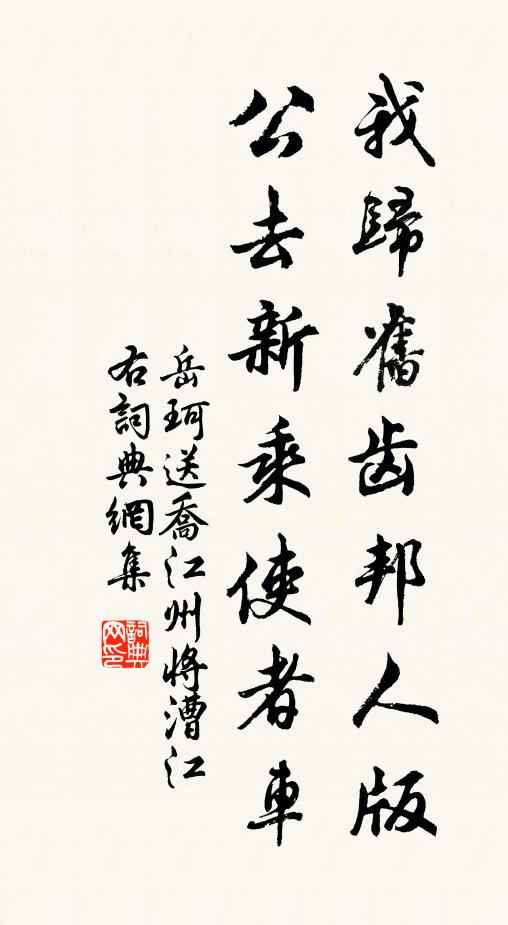 我歸舊齿邦人版
公去新乘使者車
岳珂送喬江州将漕江
右詞典網集
詞典网印